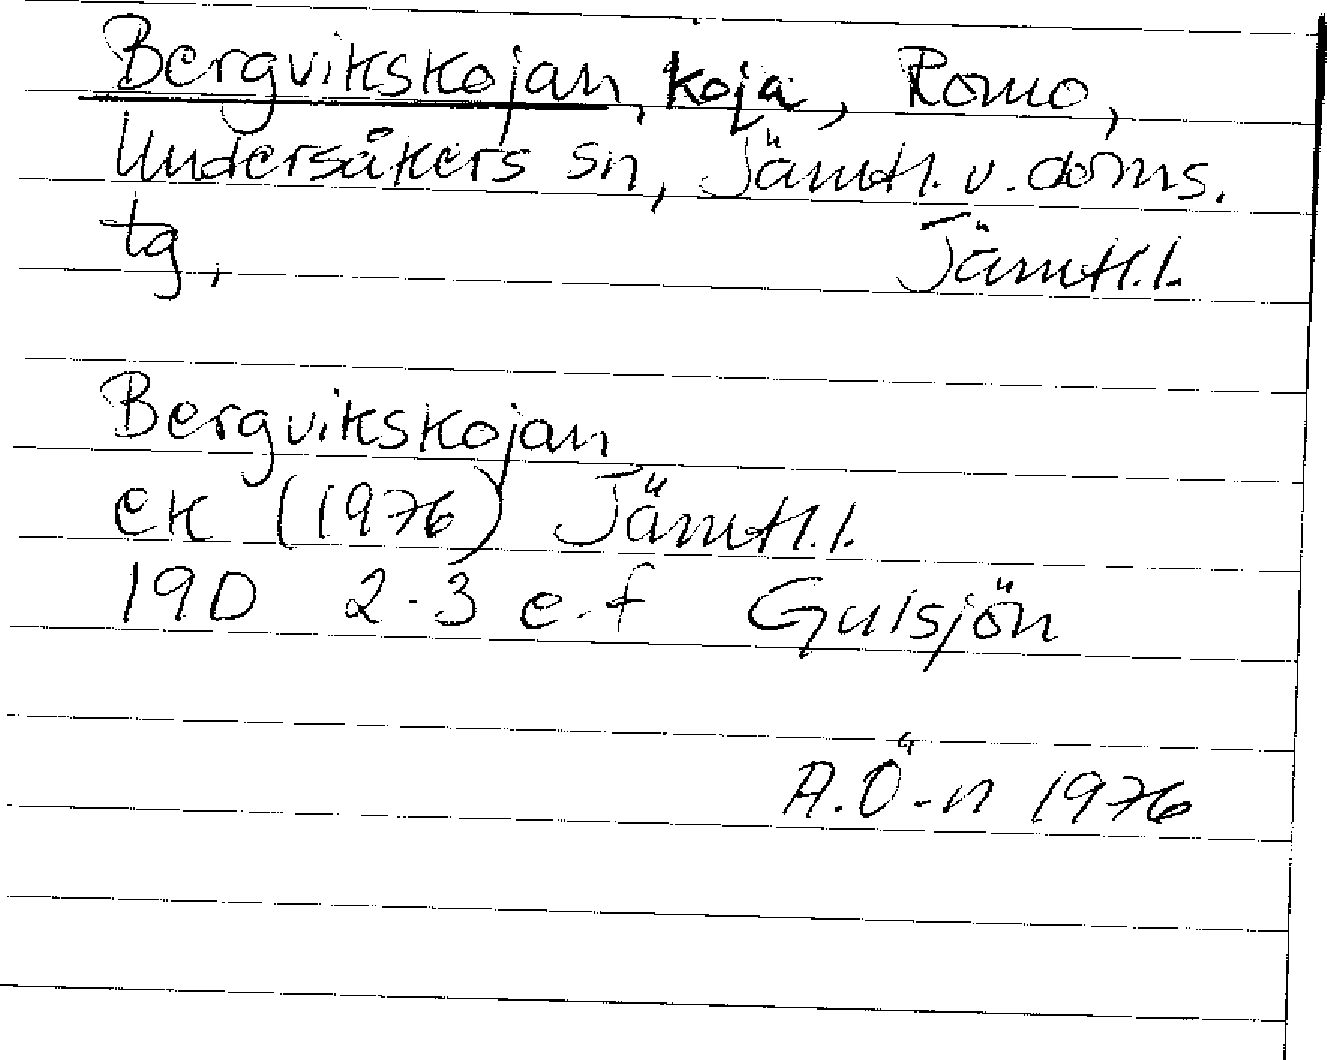 Bergvikskojan, koja, Romo,
Undersåkers sn, Jämtl. v. doms.
tg, Jämtl.l.
Bergvikskojan
ek (1976) Jämtl.l.
19D 2-3 e-f Gulsjön
A.Ö-n 1976